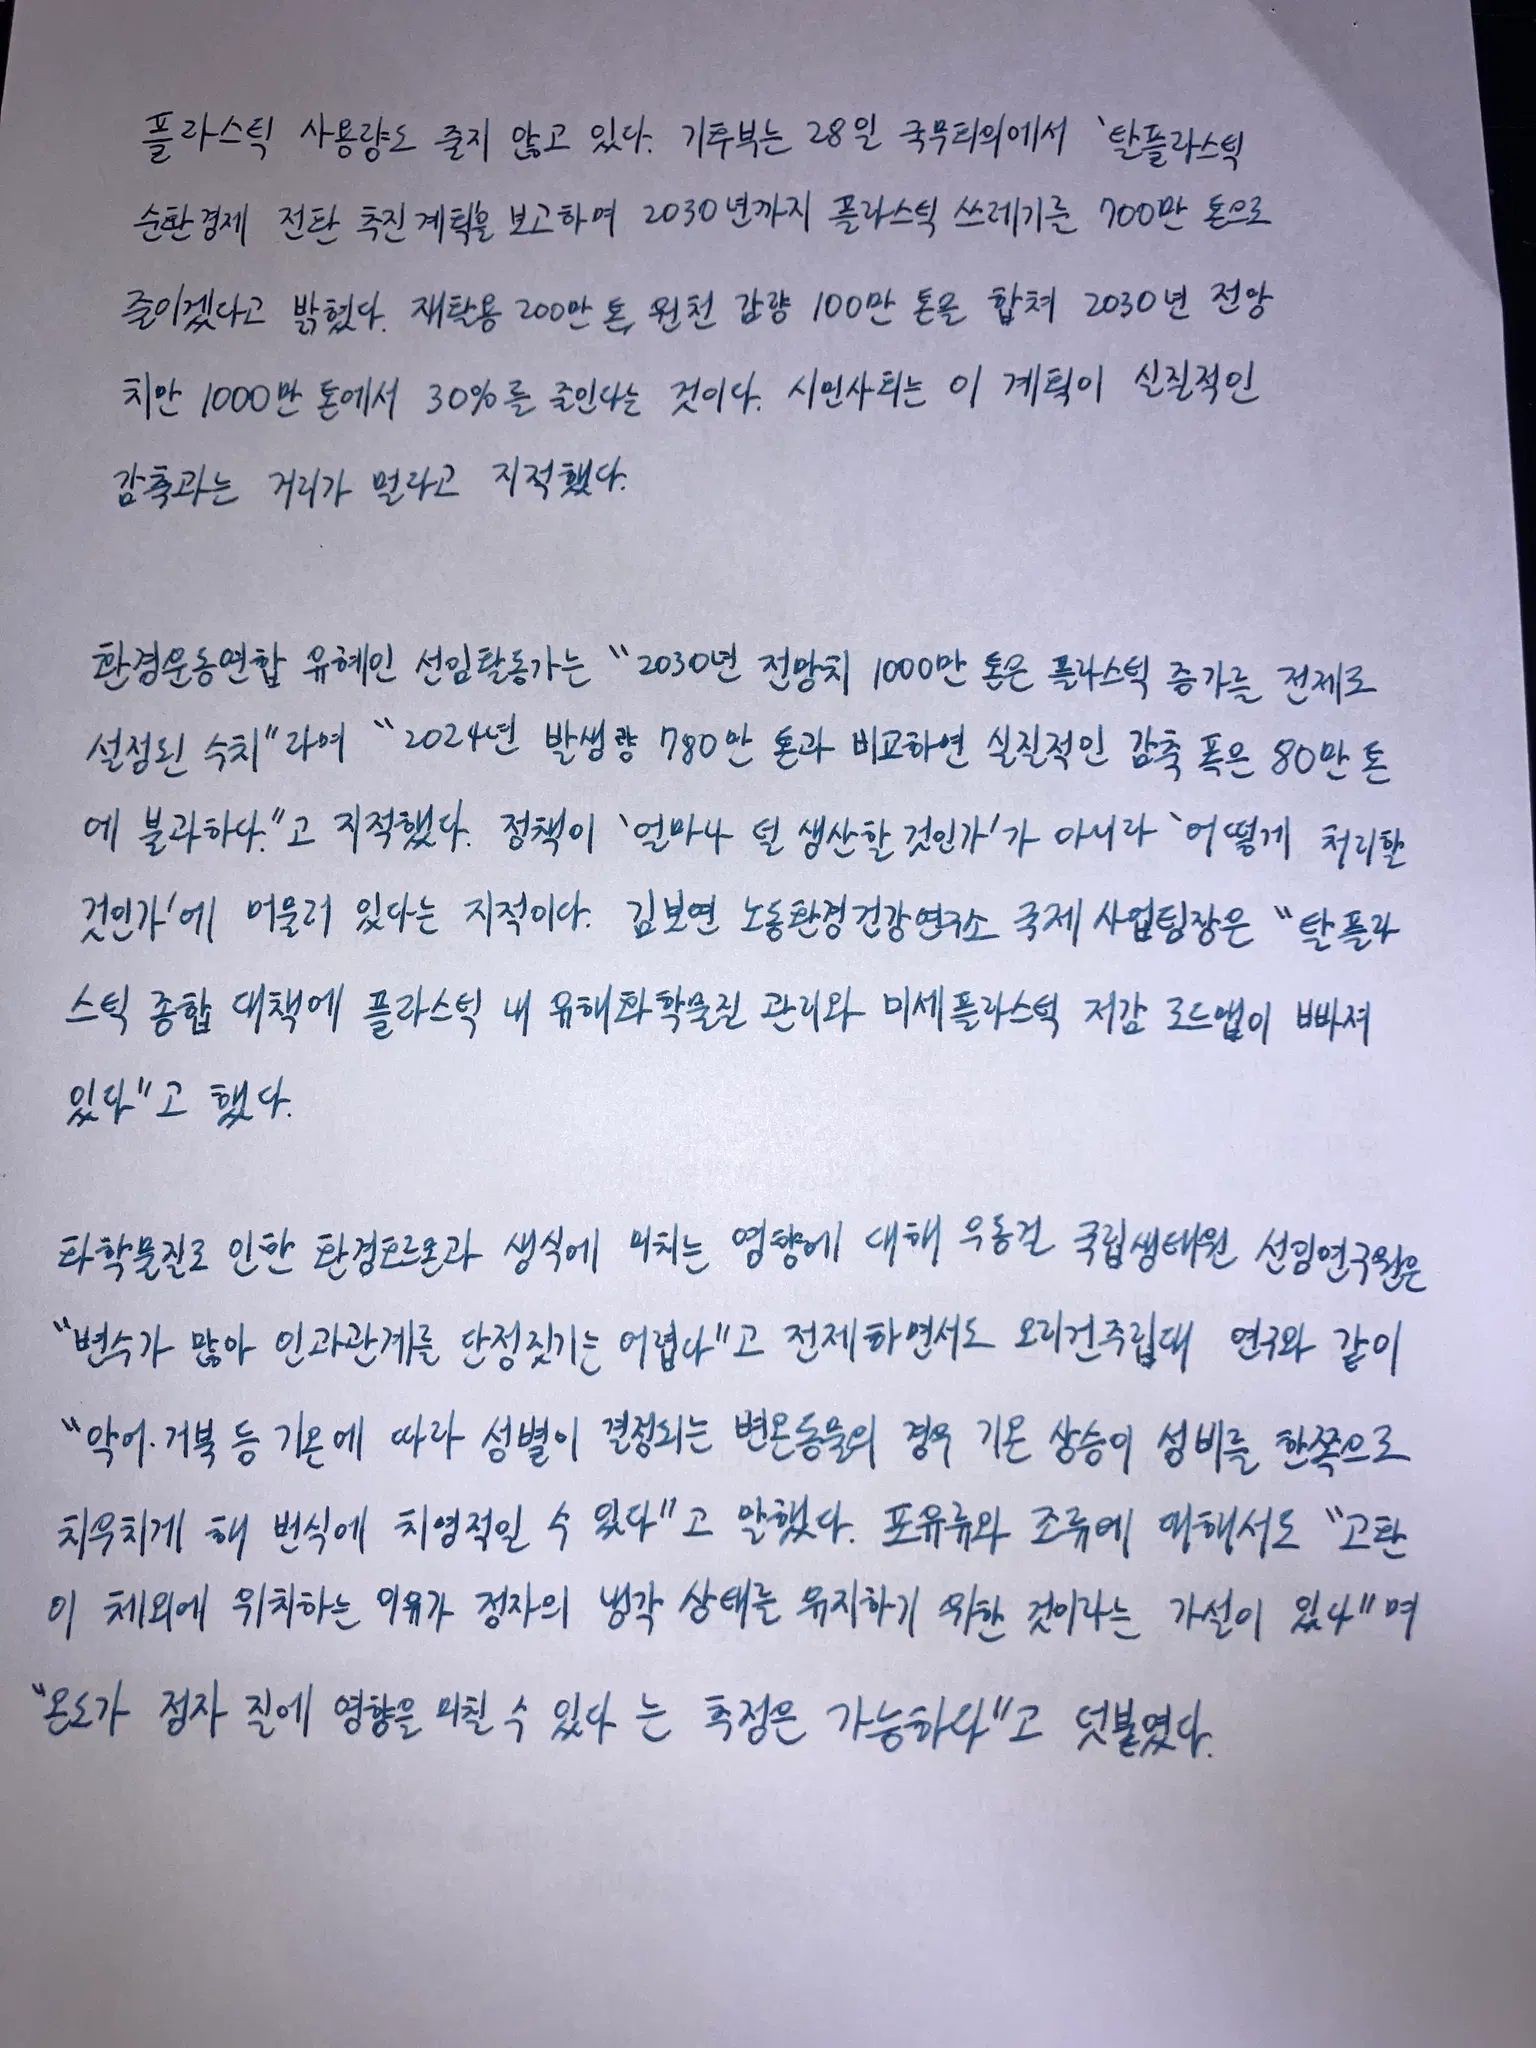 플라스틱 사용량도 줄지 않고 있다. 기후부는 28일 국무회의에서 '탈플라스틱
순환경제 전환 추진계획'을 보고하며 2030년까지 플라스틱 쓰레기를 700만 톤으로
줄이겠다고 밝혔다. 재활용 200만 톤, 원천 감량 100만 톤을 합쳐 2030년 전망
치안 1000만 톤에서 30%를 줄인다는 것이다. 시민사회는 이 계획이 실질적인
감축과는 거리가 멀다고 지적했다.
환경운동연합 유혜인 선임활동가는 "2030년 전망치 1000만 톤은 플라스틱 증가를 전제로
설정된 수치"라며 "2024년 발생량 780만 톤과 비교하면 실질적인 감축 폭은 80만 톤
에 불과하다."고 지적했다. 정책이 '얼마나 덜 생산할 것인가'가 아니라 '어떻게 처리할
것인가'에 머물러 있다는 지적이다. 김보연 노동환경건강연구소 국제 사업팀장은 "탈플라
스틱 종합 대책에 플라스틱 내 유해화학물질 관리와 미세플라스틱 저감 로드맵이 빠져
있다"고 했다.
화학물질로 인한 환경호르몬과 생식에 미치는 영향에 대해 우동걸 국립생태원 선임연구원은
"변수가 많아 인과관계를 단정짓기는 어렵다"고 전제하면서도 오리건주립대 연구와 같이
"악어·거북 등 기온에 따라 성별이 결정되는 변온동물의 경우 기온 상승이 성비를 한쪽으로
치우치게 해 번식에 치명적일 수 있다"고 말했다. 포유류와 조류에 대해서도 "고환
이 체외에 위치하는 이유가 정자의 냉각 상태를 유지하기 위한 것이라는 가설이 있다"며
"온도가 정자 질에 영향을 미칠 수 있다 는 추정은 가능하다"고 덧붙였다.